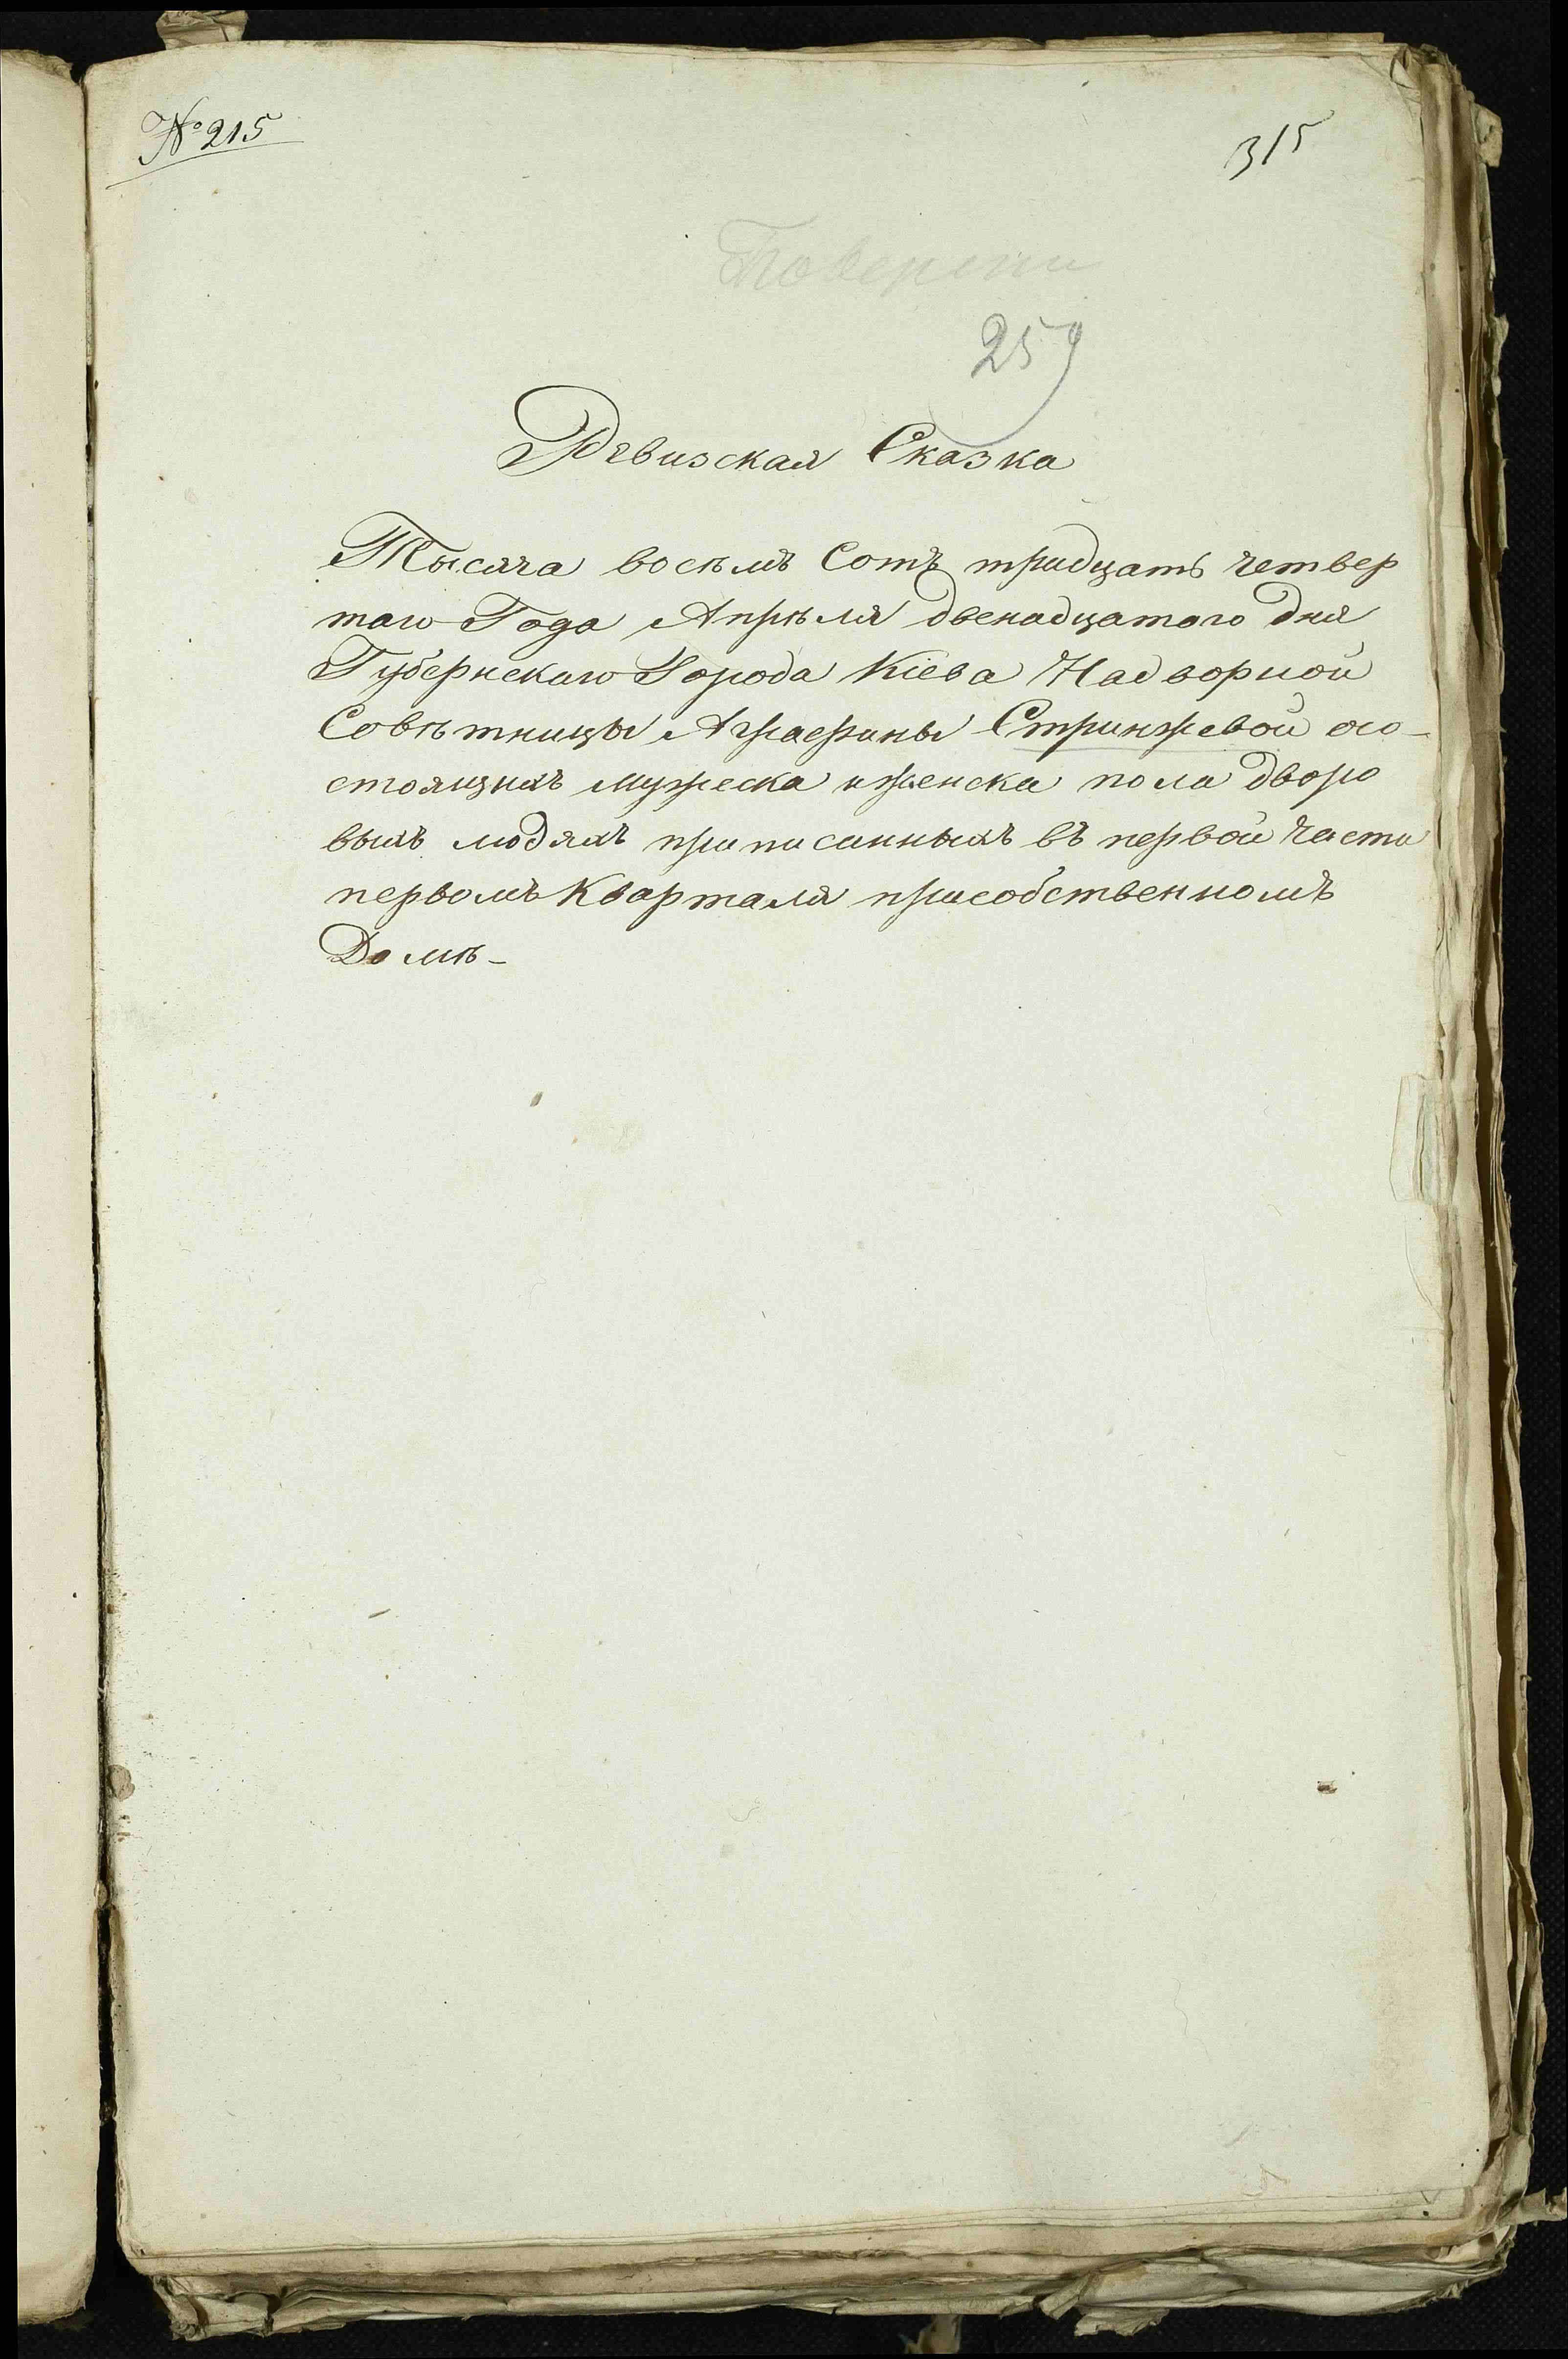 № 215
315
259
Ревизская Сказка
Тысяча восемь Сотъ тридцать четвер
таго Года Апрѣля двенадцатого дня
Губернскаго Города Кіева Надворной
Совѣтницы Аграфины Стринжевой осо-
стоящихъ мужеска и женска пола дворо
выхъ людяхъ приписанныхъ въ первой части
первомъ Квартала присобственномъ
Домѣ-